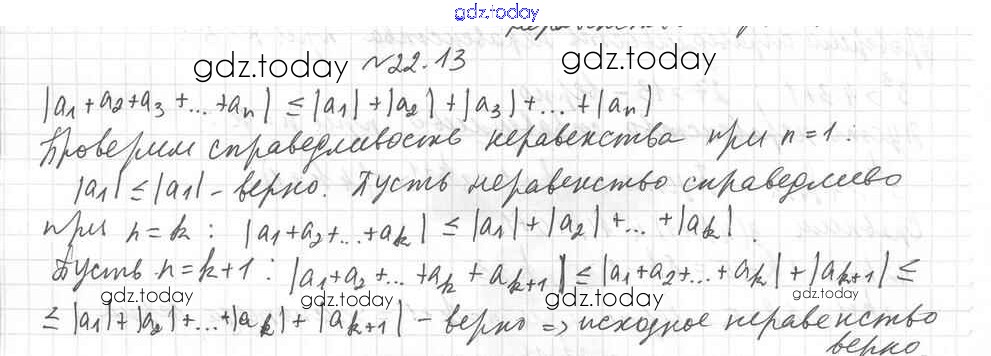 gdz.today
gdz.today №22.13 gdz.today
|a1+a2+a3+...+an| ≤ |a1|+|a2|+|a3|+...+|an|
Проверим справедливость неравенства при n=1:
|a1| ≤ |a1| - верно. Пусть неравенство справедливо
при n=k: |a1+a2+...+ak| ≤ |a1|+|a2|+...+|ak|.
gdz.today gdz.today
Пусть n=k+1: |a1+a2+...+ak+ak+1| ≤ |a1+a2+...+ak|+|ak+1| ≤
gdz.today gdz.today gdz.today
≤ |a1|+|a2|+...+|ak|+|ak+1| - верно => исходное неравенство
верно